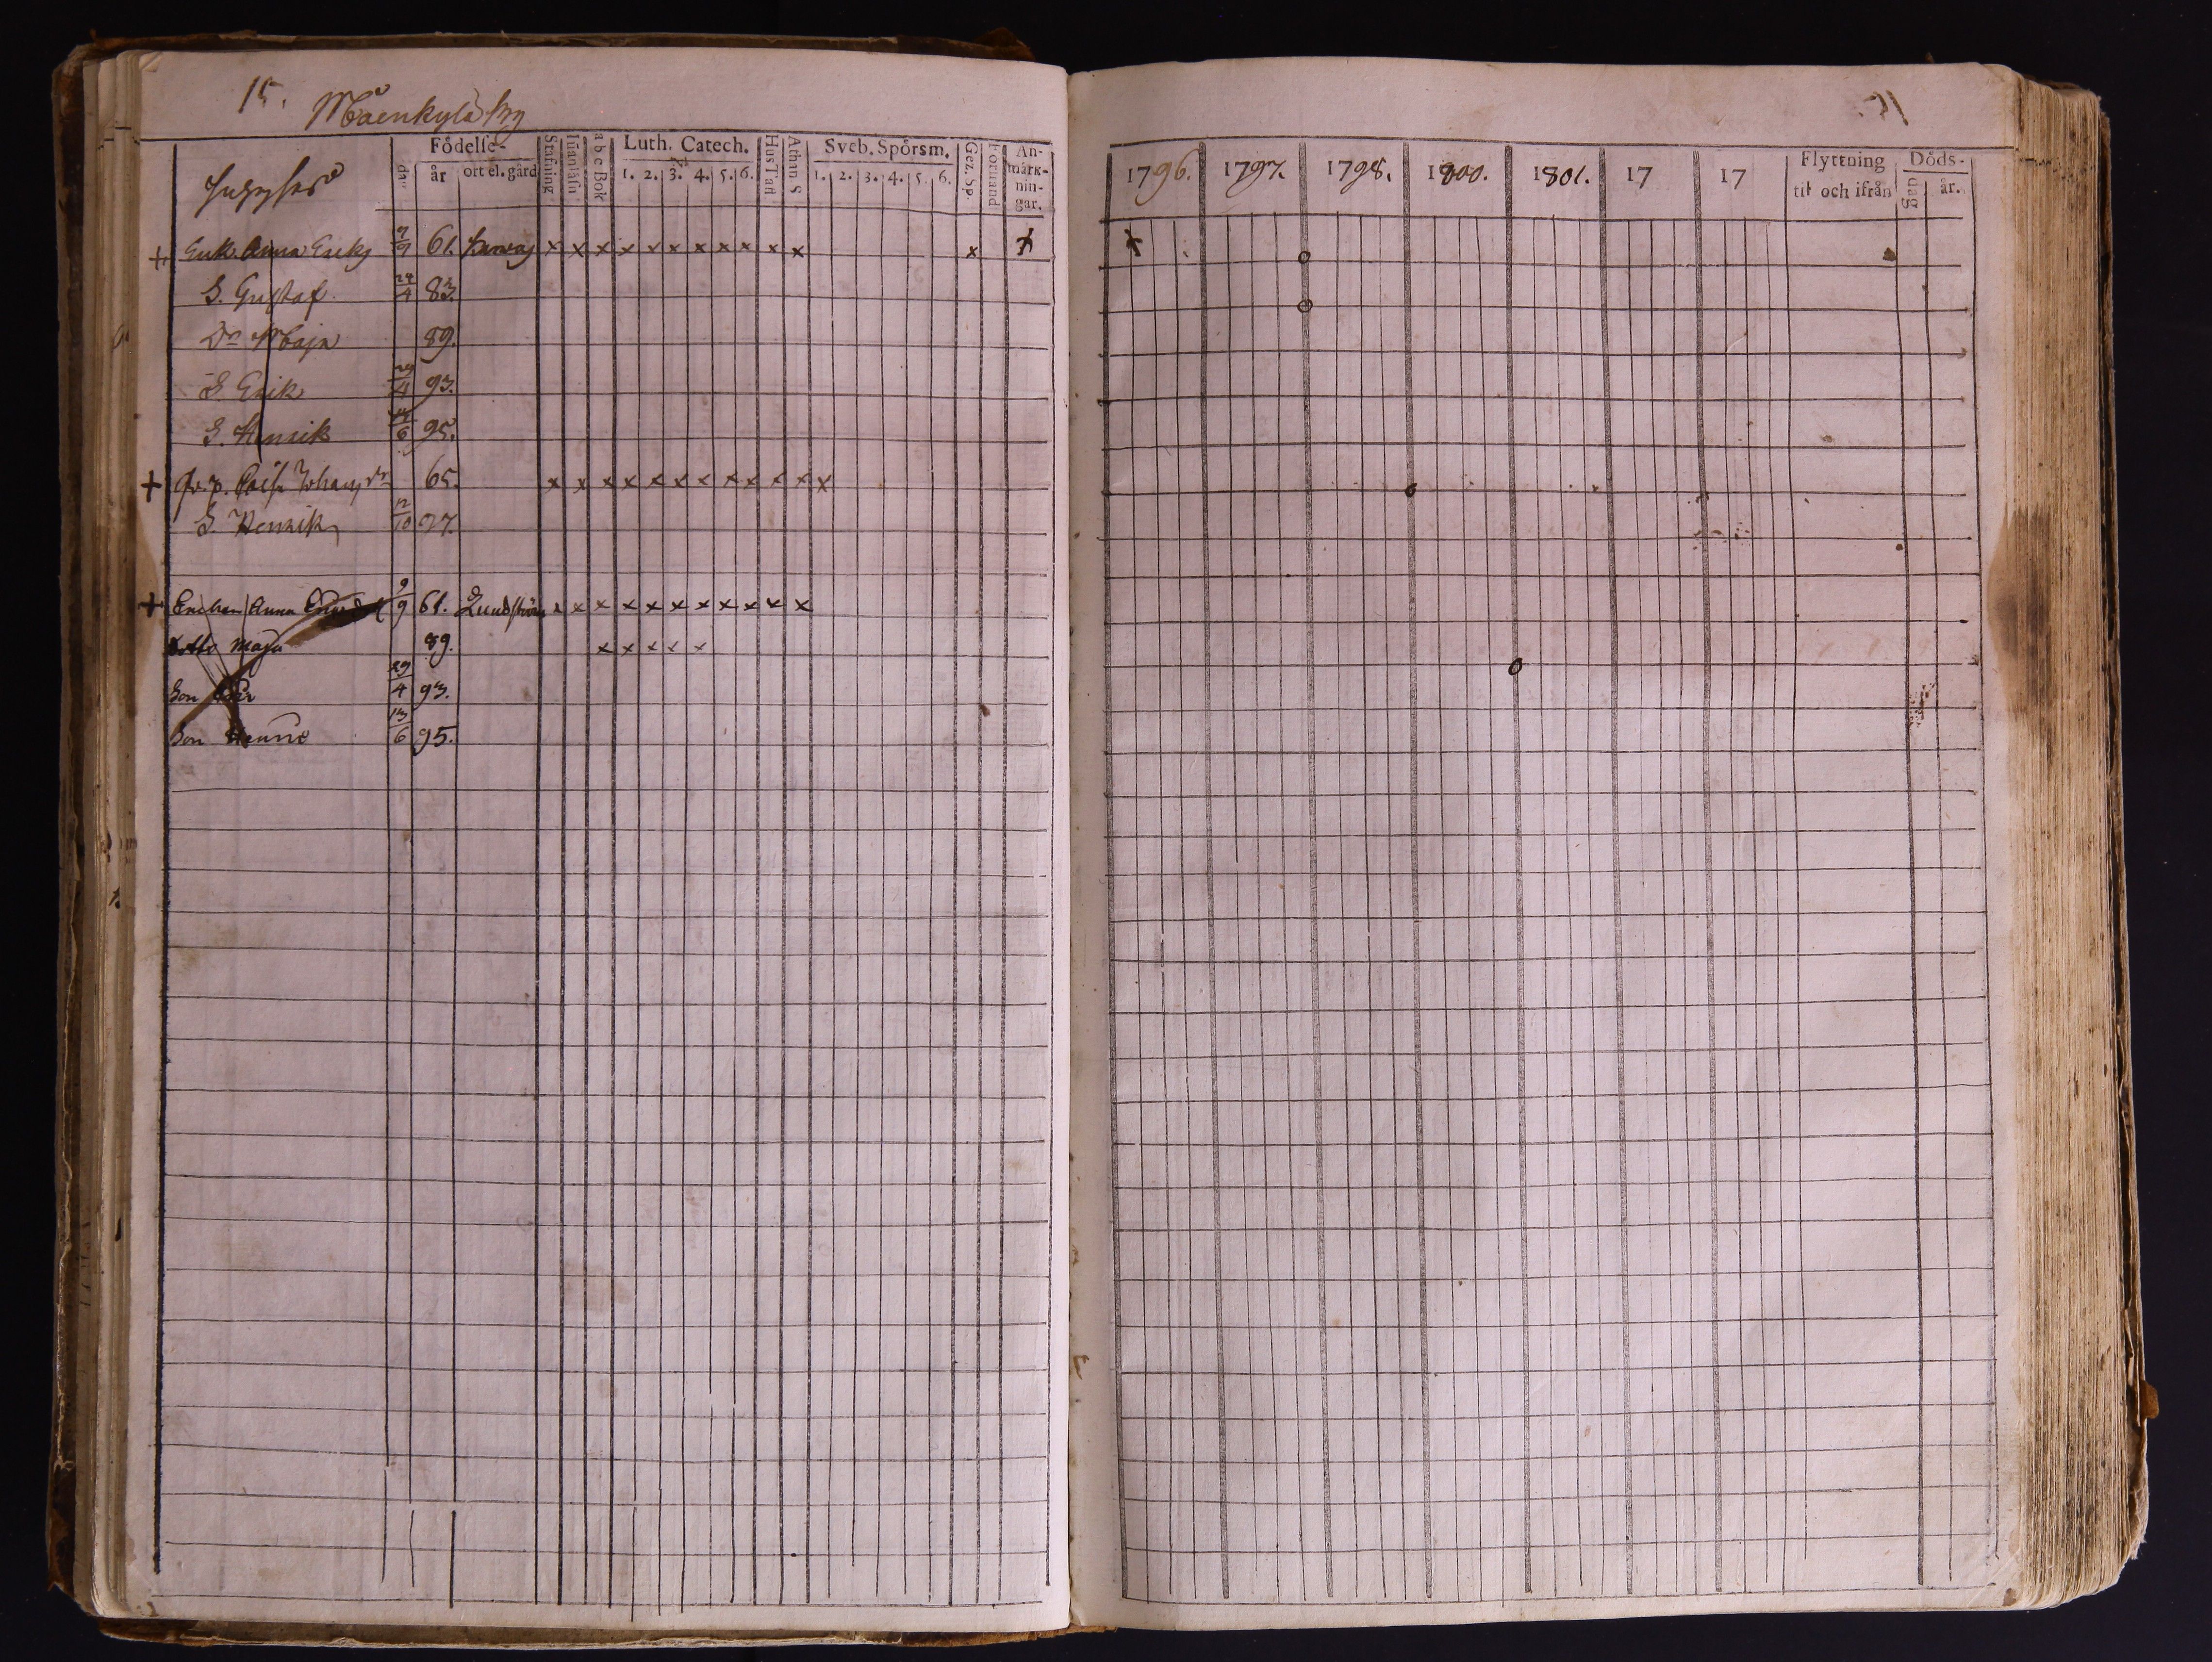 15.
Måenkylä by
Födelse-
dag
år
ort el. gård
Stafning
Inanläsn
a b c Bok
Luth. Catech.
1. 2. 3. 4. 5. 6.
Hus Tafl
Athan S
Sveb. Spörsm.
1. 2. 3. 4. 5. 6.
Gez. Sp.
Förstånd
An-
märk-
nin-
gar.
+ Enk. Anna Eriks 9/9 61. x x x x x x x x x x x x
S. Gustaf 24/4 83.
Dr Maja 89.
S Erik 29/4 93.
S. Henrik 13/6 95.
+ Johansdr 65. x x x x x x x x x x x x
S. Henrik 12/10 97.
+ Enckan Anna 9/9 61. x x x x x x x x x x x
dotter Maja 89. x x x x x
Son 29/4 93.
Son 13/6 95.
15.
1796. 1797. 1798. 1800. 1801. 17 17
Flyttning
til och ifrån
Döds-
dag
år.